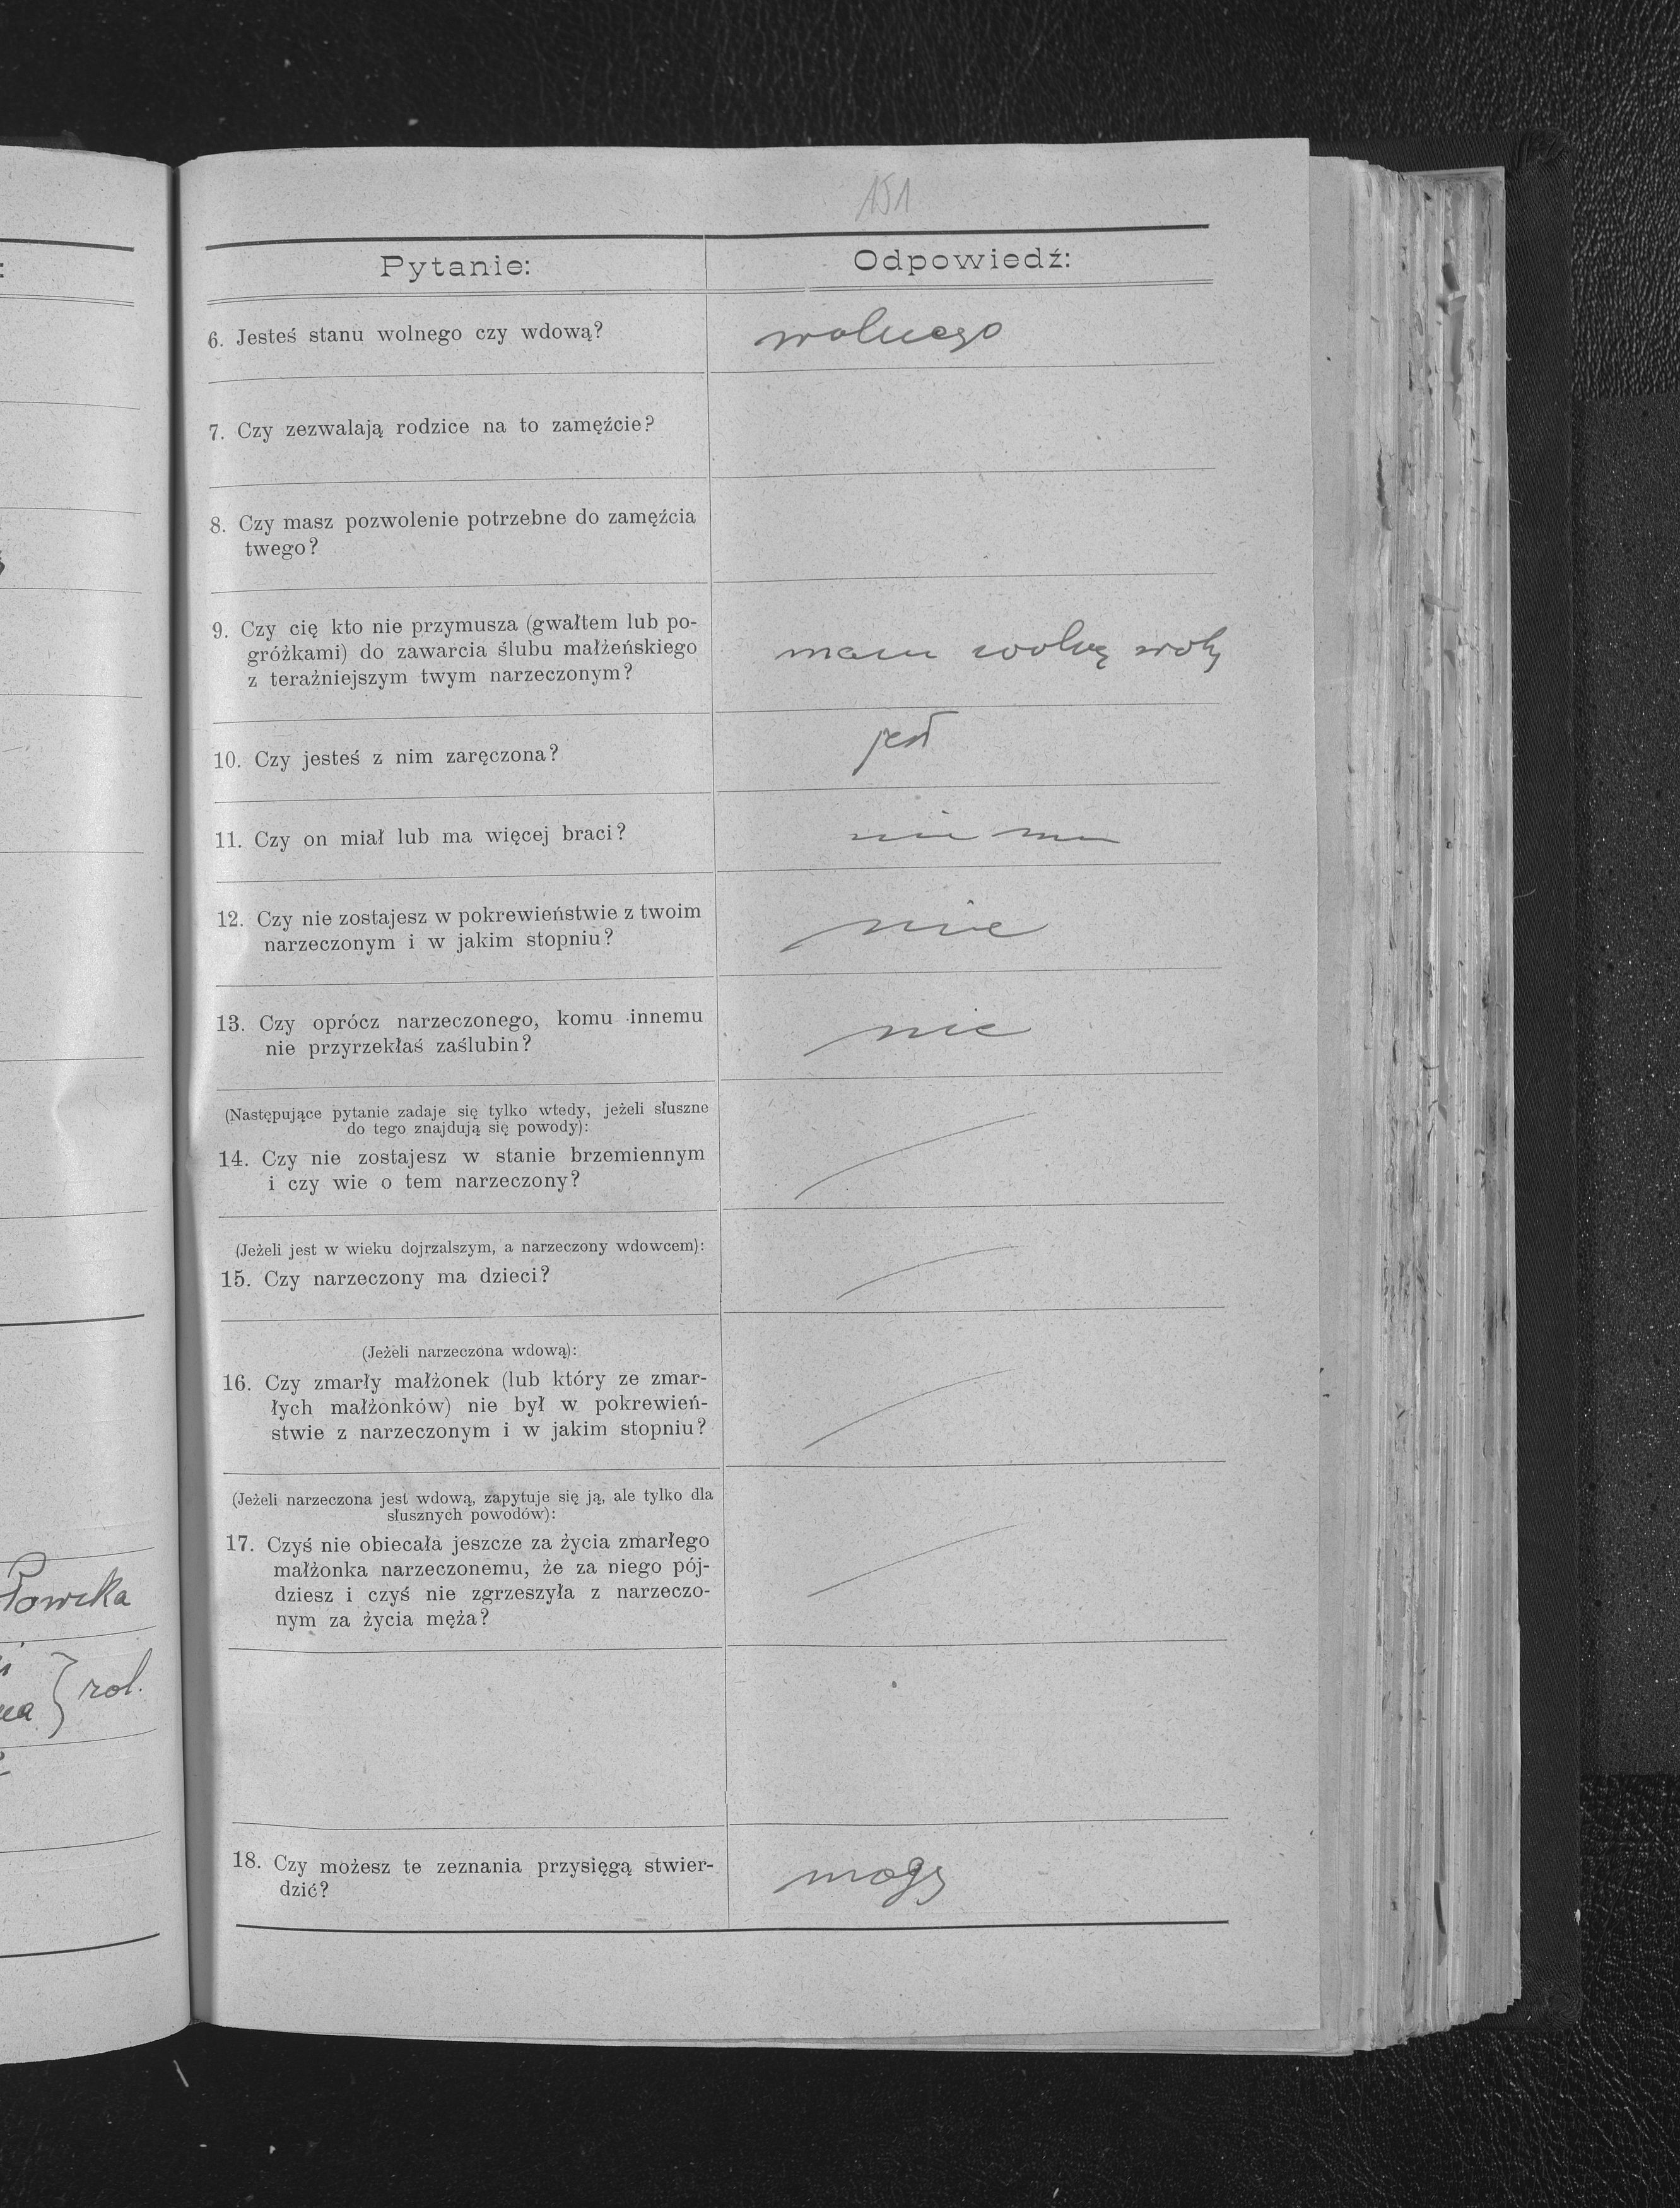 151
Pytanie:
Odpowiedź:
6. Jesteś stanu wolnego czy wdową?
wolnego
7. Czy zezwalają rodzice na to zamęźcie?
8. Czy masz pozwolenie potrzebne do zamęźcia
twego?
9. Czy cię kto nie przymusza (gwałtem lub po-
gróżkami) do zawarcia ślubu małżeńskiego
z teraźniejszym twym narzeczonym?
mam wolną wolę
10. Czy jesteś z nim zaręczona?
jest
11. Czy on miał lub ma więcej braci?
nie ma
12. Czy nie zostajesz w pokrewieństwie z twoim
narzeczonym i w jakim stopniu?
nie
13. Czy oprócz narzeczonego, komu innemu
nie przyrzekłaś zaślubin?
nie
(Następujące pytanie zadaje się tylko wtedy, jeżeli słuszne
do tego znajdują się powody):
14. Czy nie zostajesz w stanie brzemiennym
i czy wie o tem narzeczony?
(Jeżeli jest w wieku dojrzalszym, a narzeczony wdowcem):
15. Czy narzeczony ma dzieci?
(Jeżeli narzeczona wdową):
16. Czy zmarły małżonek (lub który ze zmar-
łych małżonków) nie był w pokrewień-
stwie z narzeczonym i w jakim stopniu?
(Jeżeli narzeczona jest wdową, zapytuje się ją, ale tylko dla
słusznych powodów):
17. Czyś nie obiecała jeszcze za życia zmarłego
małżonka narzeczonemu, że za niego pój-
dziesz i czyś nie zgrzeszyła z narzeczo-
nym za życia męża?
18. Czy możesz te zeznania przysięgą stwier-
dzić?
mogę
rol.